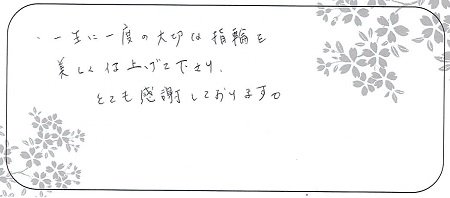 ・一生に一度の大切な指輪を
美しく仕上げて下さり、
とても感謝しております。